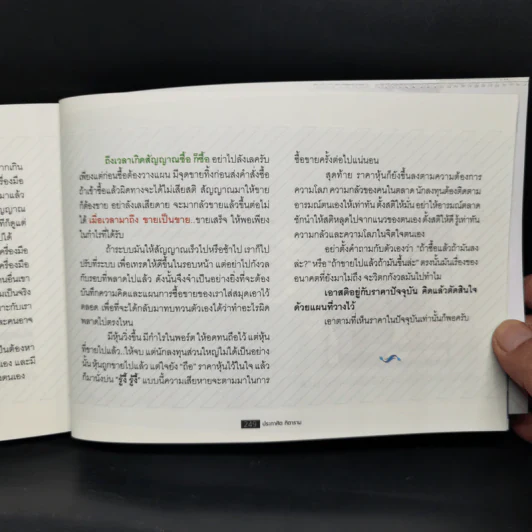 ากเกิน
ครื่องมือ
มาแล้ว
ญญาณ
ที่ก็ดูแต่
ปได้
ครื่องมือ
ครื่องมือ
อนอื่นเขา
มเป็นจริง
าะกับเรา
ะคนอาจ
เป็นต้องหา
เอง และมี
งตนเอง
ถึงเวลาเกิดสัญญาณซื้อ ก็ซื้อ อย่าไปลังเลครับ
เพียงแต่ก่อนซื้อต้องวางแผน มีจุดขายทิ้งก่อนส่งคำสั่งซื้อ
ถ้าเข้าซื้อแล้วผิดทางจะได้ไม่เสียสติ สัญญาณมาให้ขาย
ก็ต้องขาย อย่าลังเลเสียดาย จะมากลัวขายแล้วขึ้นต่อไม่
ได้ เมื่อเวลามาถึง ขายเป็นขาย..ขายเสร็จ ให้พอเพียง
ในกำไรที่ได้รับ
ถ้าระบบมันให้สัญญาณเร็วไปหรือช้าไป เราก็ไป
ปรับที่ระบบ เพื่อเทรดให้ดีขึ้นในรอบหน้า แต่อย่าไปกังวล
กับรอบที่พลาดไปแล้ว ดังนั้นจึงจำเป็นอย่างยิ่งที่จะต้อง
บันทึกความคิดและแผนการซื้อขายของเราใส่สมุดเอาไว้
ตลอด เพื่อที่จะได้กลับมาทบทวนตัวเองได้ว่าทำอะไรผิด
พลาดไปตรงไหน
มีหุ้นวิ่งขึ้น มีกำไรในพอร์ต ให้อดทนถือไว้ แต่หุ้น
ที่ขายไปแล้ว..ให้จบ แต่นักลงทุนส่วนใหญ่ไม่ได้เป็นอย่าง
นั้น หุ้นถูกขายไปแล้ว แต่ใจยัง "ถือ" ราคาหุ้นไว้ในใจ แล้ว
ก็มานั่งบ่น "รู้งี้ รู้งี้" แบบนี้ความเสียหายจะตามมาในการ
ซื้อขายครั้งต่อไปแน่นอน
สุดท้าย ราคาหุ้นก็ยังขึ้นลงตามความต้องการ
ความโลภ ความกลัวของคนในตลาด นักลงทุนต้องติดตาม
อารมณ์ตนเองให้เท่าทัน ตั้งสติให้มั่น อย่าให้อารมณ์ตลาด
ชักนำให้สติหลุดไปจากแนวของตนเอง ตั้งสติให้ดี รู้เท่าทัน
ความกลัวและความโลภในจิตใจตนเอง
อย่าตั้งคำถามกับตัวเองว่า "ถ้าซื้อแล้วถ้ามันลง
ล่ะ?" หรือ "ถ้าขายไปแล้วถ้ามันขึ้นล่ะ" ตรงนั้นมันเรื่องของ
อนาคตที่ยังมาไม่ถึง จะวิตกกังวลมันไปทำไม
เอาสติอยู่กับราคาปัจจุบัน คิดแล้วตัดสินใจ
ด้วยแผนที่วางไว้
เอาตามที่เห็นราคาในปัจจุบันเท่านั้นก็พอครับ
249 ประชาคิด กิจการาม